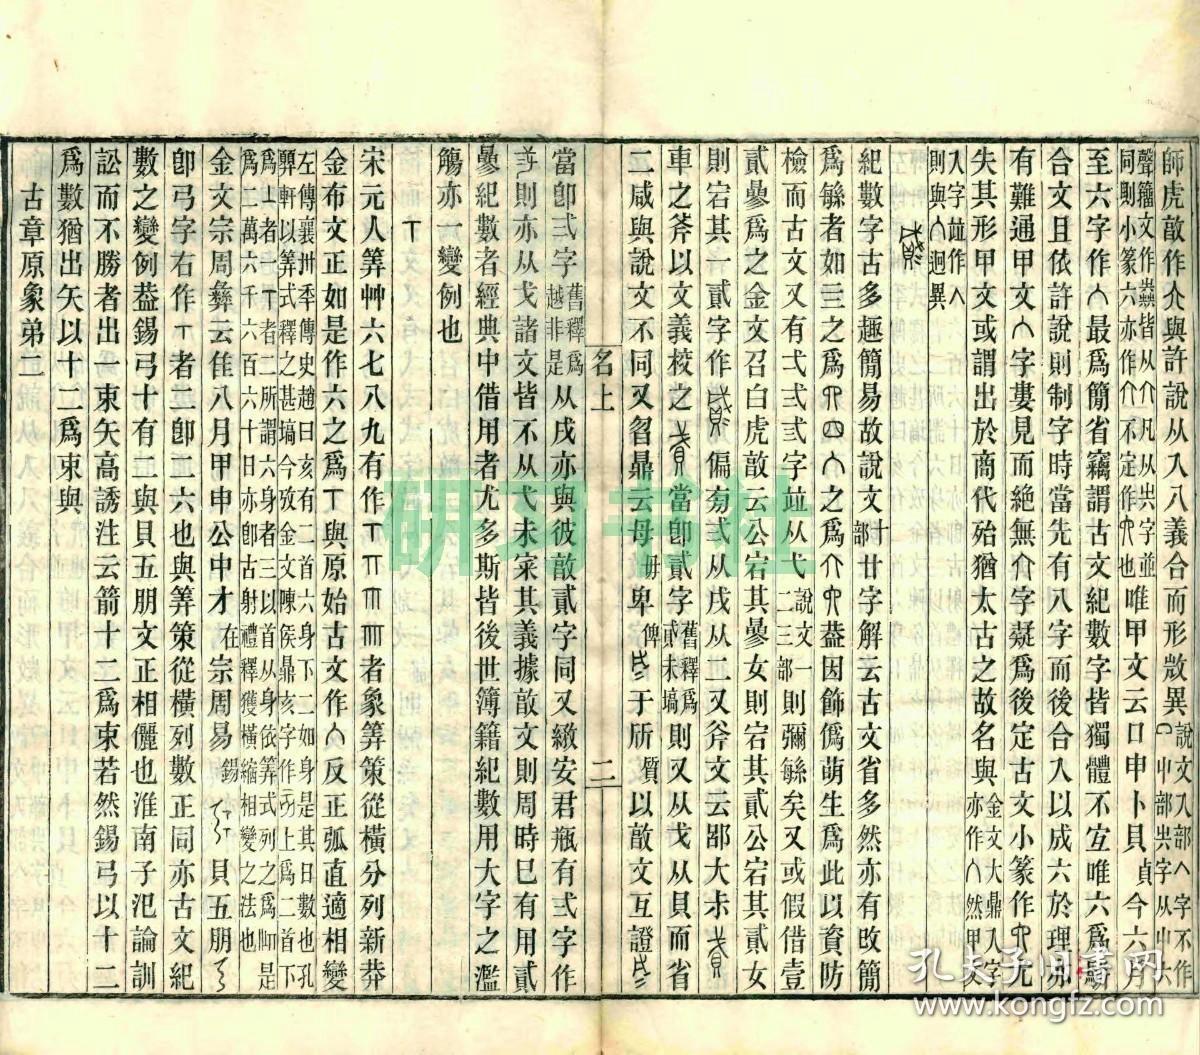 師虎敦作介與許說从入八義合而形㪚異說文入部入字不作
聲籀文作皆从介凡从字並
同則小篆六亦作介不定作也唯甲文云口申卜貝貞今六月
至六字作最爲簡省竊謂古文紀數字皆獨體不宐唯六爲
合文且依許說則制字時當先有八字而後合入以成六於理那
有難通甲文字婁見而絕無介字疑爲後定古文小篆作尤
失其形甲文或謂出於商代殆猶太古之故名與金文大鼎入字亦作然甲文
入字竝作入
則與迥異
紀數字古多趣簡易故說文十部廿字解云古文省多然亦有改簡
爲緐者如三之爲四之爲介葢因飾僞萌生爲此以資防
檢而古文又有弌弍弎字竝从弋說文一二三部則彌緐矣又或假借壹
貳曑爲之金文召白虎敦云公宕其曑女則宕其貳公宕其貳女
則宕其一貳字作偏㫄弍从戌从二又斧文云郘大未
車之斧以文義校之當卽貳字舊釋爲貳未塙則又从戈从貝而省
二咸與說文不同又曶鼎云母毋卑俾于所以敦文互證
名上
二
當卽弍字舊釋爲越非是从戌亦與彼敦貳字同又緻安君瓶有弍字作
則亦从戈諸文皆不从弋未宷其義據敦文則周時已有用貳
曑紀數者經典中借用者尤多斯皆後世簿籍紀數用大字之濫
觴亦一變例也
宋元人筭艸六七八九有作〒者象筭策從橫分列新莽
金布文正如是作六之爲丅與原始古文作反正弧直適相變
左傳襄卅年傳史趙曰亥有二首六身下二如身是其日數也孔
㢲軒以筭式釋之甚塙今攷金文陳矦鼎亥字作上爲二首下
爲丄者一丅者二所謂六身者三以首从身依筭式列之爲是
爲二萬六千六百六十日亦卽古射禮釋獲橫縮相變之法也
金文宗周彝云隹八月甲申公中才在宗周易錫貝五朋
卽弓字右作者卽二六也與筭策從橫列數正同亦古文紀
數之變例葢錫弓十有二與貝五朋文正相儷也淮南子氾論訓
訟而不勝者出一束矢高誘注云箭十二爲束若然錫弓以十二
爲數猶出矢以十二爲束與
古章原象弟二
研习书社
孔夫子旧书网
www.kongfz.com